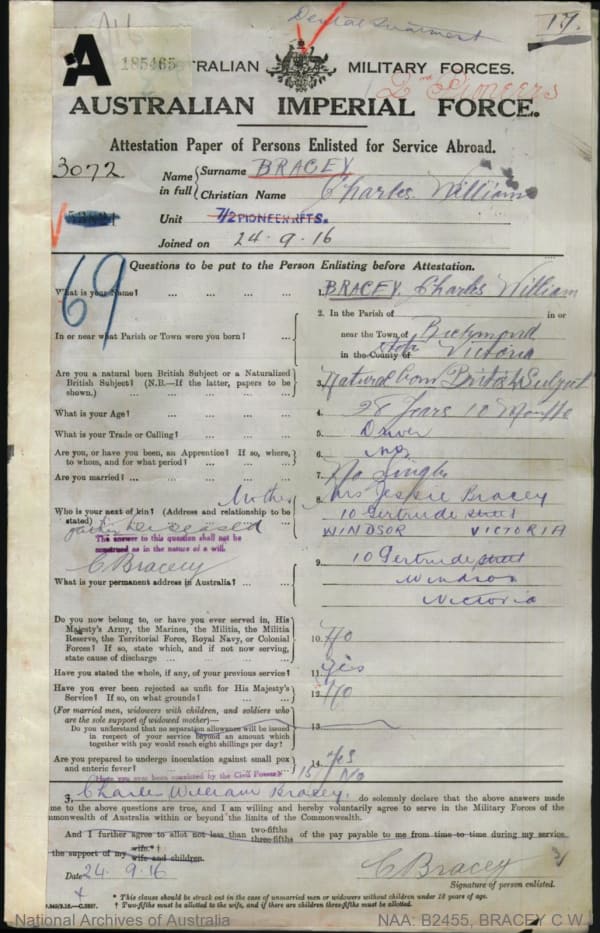 Dental Treatment
17.
A
185465
RALIAN MILITARY FORCES.
2nd Pioneers
AUSTRALIAN IMPERIAL FORCE.
Attestation Paper of Persons Enlisted for Service Abroad.
3072
Name in full
Surname BRACEY
Christian Name Charles William
Unit 7/2 PIONEER RFTS.
Joined on 24.9.16
69
Questions to be put to the Person Enlisting before Attestation.
What is your Name? ... ... ... ...
1. BRACEY Charles William
In or near what Parish or Town were you born? ...
2. In the Parish of in or
near the Town of Richmond
in the County of State Victoria
Are you a natural born British Subject or a Naturalized British Subject? (N.B.—If the latter, papers to be shown.) ... ... ... ... ...
3. Natural born British Subject
What is your Age? ... ... ... ...
4. 28 Years 10 Months
What is your Trade or Calling? ... ... ...
5. Driver
Are you, or have you been, an Apprentice? If so, where, to whom, and for what period? ... ... ...
6. No
Are you married? ... ... ... ... ...
7. No Single
Mother
Who is your next of kin? (Address and relationship to be stated)
8. Mrs Jessie Bracey
10 Gertrude Street
WINDSOR VICTORIA
father Deceased
The answer to this question shall not be construed as in the nature of a will.
C Bracey
What is your permanent address in Australia? ...
9. 10 Gertrude street
Windsor
Victoria
Do you now belong to, or have you ever served in, His Majesty's Army, the Marines, the Militia, the Militia Reserve, the Territorial Force, Royal Navy, or Colonial Forces? If so, state which, and if not now serving, state cause of discharge ... ... ... ...
10. No
Have you stated the whole, if any, of your previous service?
11. Yes
Have you ever been rejected as unfit for His Majesty's Service? If so, on what grounds? ... ...
12. No
(For married men, widowers with children, and soldiers who are the sole support of widowed mother)—
Do you understand that no separation allowance will be issued in respect of your service beyond an amount which together with pay would reach eight shillings per day?
13.
Are you prepared to undergo inoculation against small pox and enteric fever? ... ...
14. Yes
Have you ever been convicted by the Civil Power?
15 No
3, Charles William Bracey, do solemnly declare that the above answers made
me to the above questions are true, and I am willing and hereby voluntarily agree to serve in the Military Forces of the
mmonwealth of Australia within or beyond the limits of the Commonwealth.
And I further agree to allot not less than two-fifths three-fifths of the pay payable to me from time to time during my service
the support of my wife.*† wife and children.
Date 24.9.16
C Bracey
Signature of person enlisted.
* This clause should be struck out in the case of unmarried men or widowers without children under 18 years of age.
† Two-fifths must be allotted to the wife, and if there are children three-fifths must be allotted.
National Archives of Australia
NAA: B2455, BRACEY C W